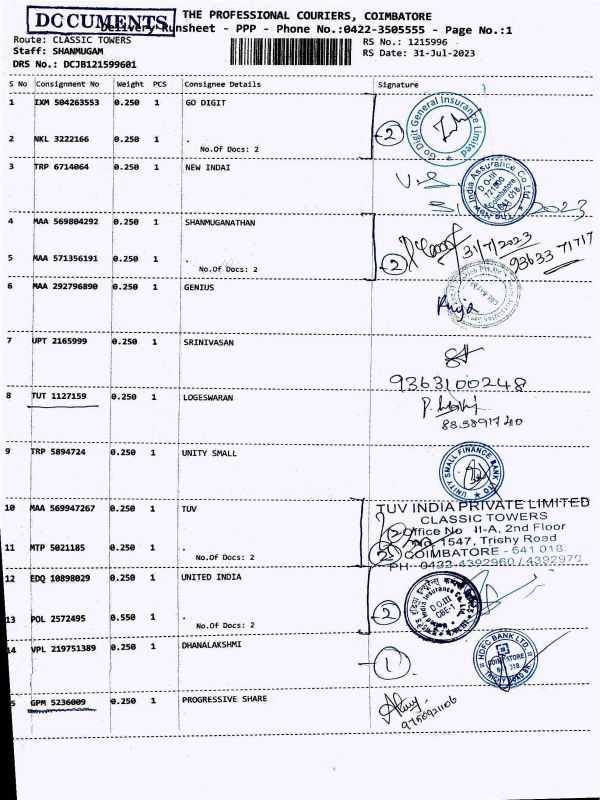 DOCUMENTS
THE PROFESSIONAL COURIERS, COIMBATORE
Delivery Runsheet - PPP - Phone No.:0422-3505555 - Page No.:1
Route: CLASSIC TOWERS
RS No.: 1215996
Staff: SHANMUGAM
RS Date: 31-Jul-2023
DRS No.: DCJB121599601
S No Consignment No Weight PCS Consignee Details Signature
1 IXM 504263553 0.250 1 GO DIGIT
Go Digit General Insurance Limited
2
2 NKL 3222166 0.250 1 .
No.Of Docs: 2
3 TRP 6714064 0.250 1 NEW INDAI
4 MAA 569804292 0.250 1 SHANMUGANATHAN
31/7/2023
93633 71717
5 MAA 571356191 0.250 1 .
No.Of Docs: 2
2
6 MAA 292796890 0.250 1 GENIUS
Puja
7 UPT 2165999 0.250 1 SRINIVASAN
9363100248
8 TUT 1127159 0.250 1 LOGESWARAN
9 TRP 5894724 0.250 1 UNITY SMALL
UNITY SMALL FINANCE BANK LTD
10 MAA 569947267 0.250 1 TUV
TUV INDIA PRIVATE LIMITED
CLASSIC TOWERS
Office No II-A, 2nd Floor
No. 1547, Trichy Road
COIMBATORE - 641 018.
PH 0422-4392960 / 4392970
11 MTP 5021185 0.250 1 .
No.Of Docs: 2
2
12 EDQ 10898029 0.250 1 UNITED INDIA
13 POL 2572495 0.550 1 .
No.Of Docs: 2
2
14 VPL 219751389 0.250 1 DHANALAKSHMI
1
HDFC BANK LTD.
5 GPM 5236009 0.250 1 PROGRESSIVE SHARE